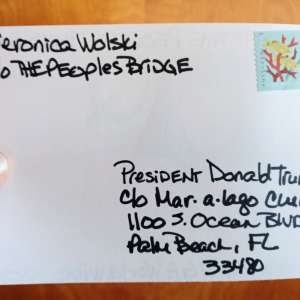 eronica Wolski
o THE PEOPLES BRIDGE
PRESIDENT DONALD TRUM
c/o MAR.a.lago Clu
1100 S. OCEAN BLVD
Palm Beach, FL
33480